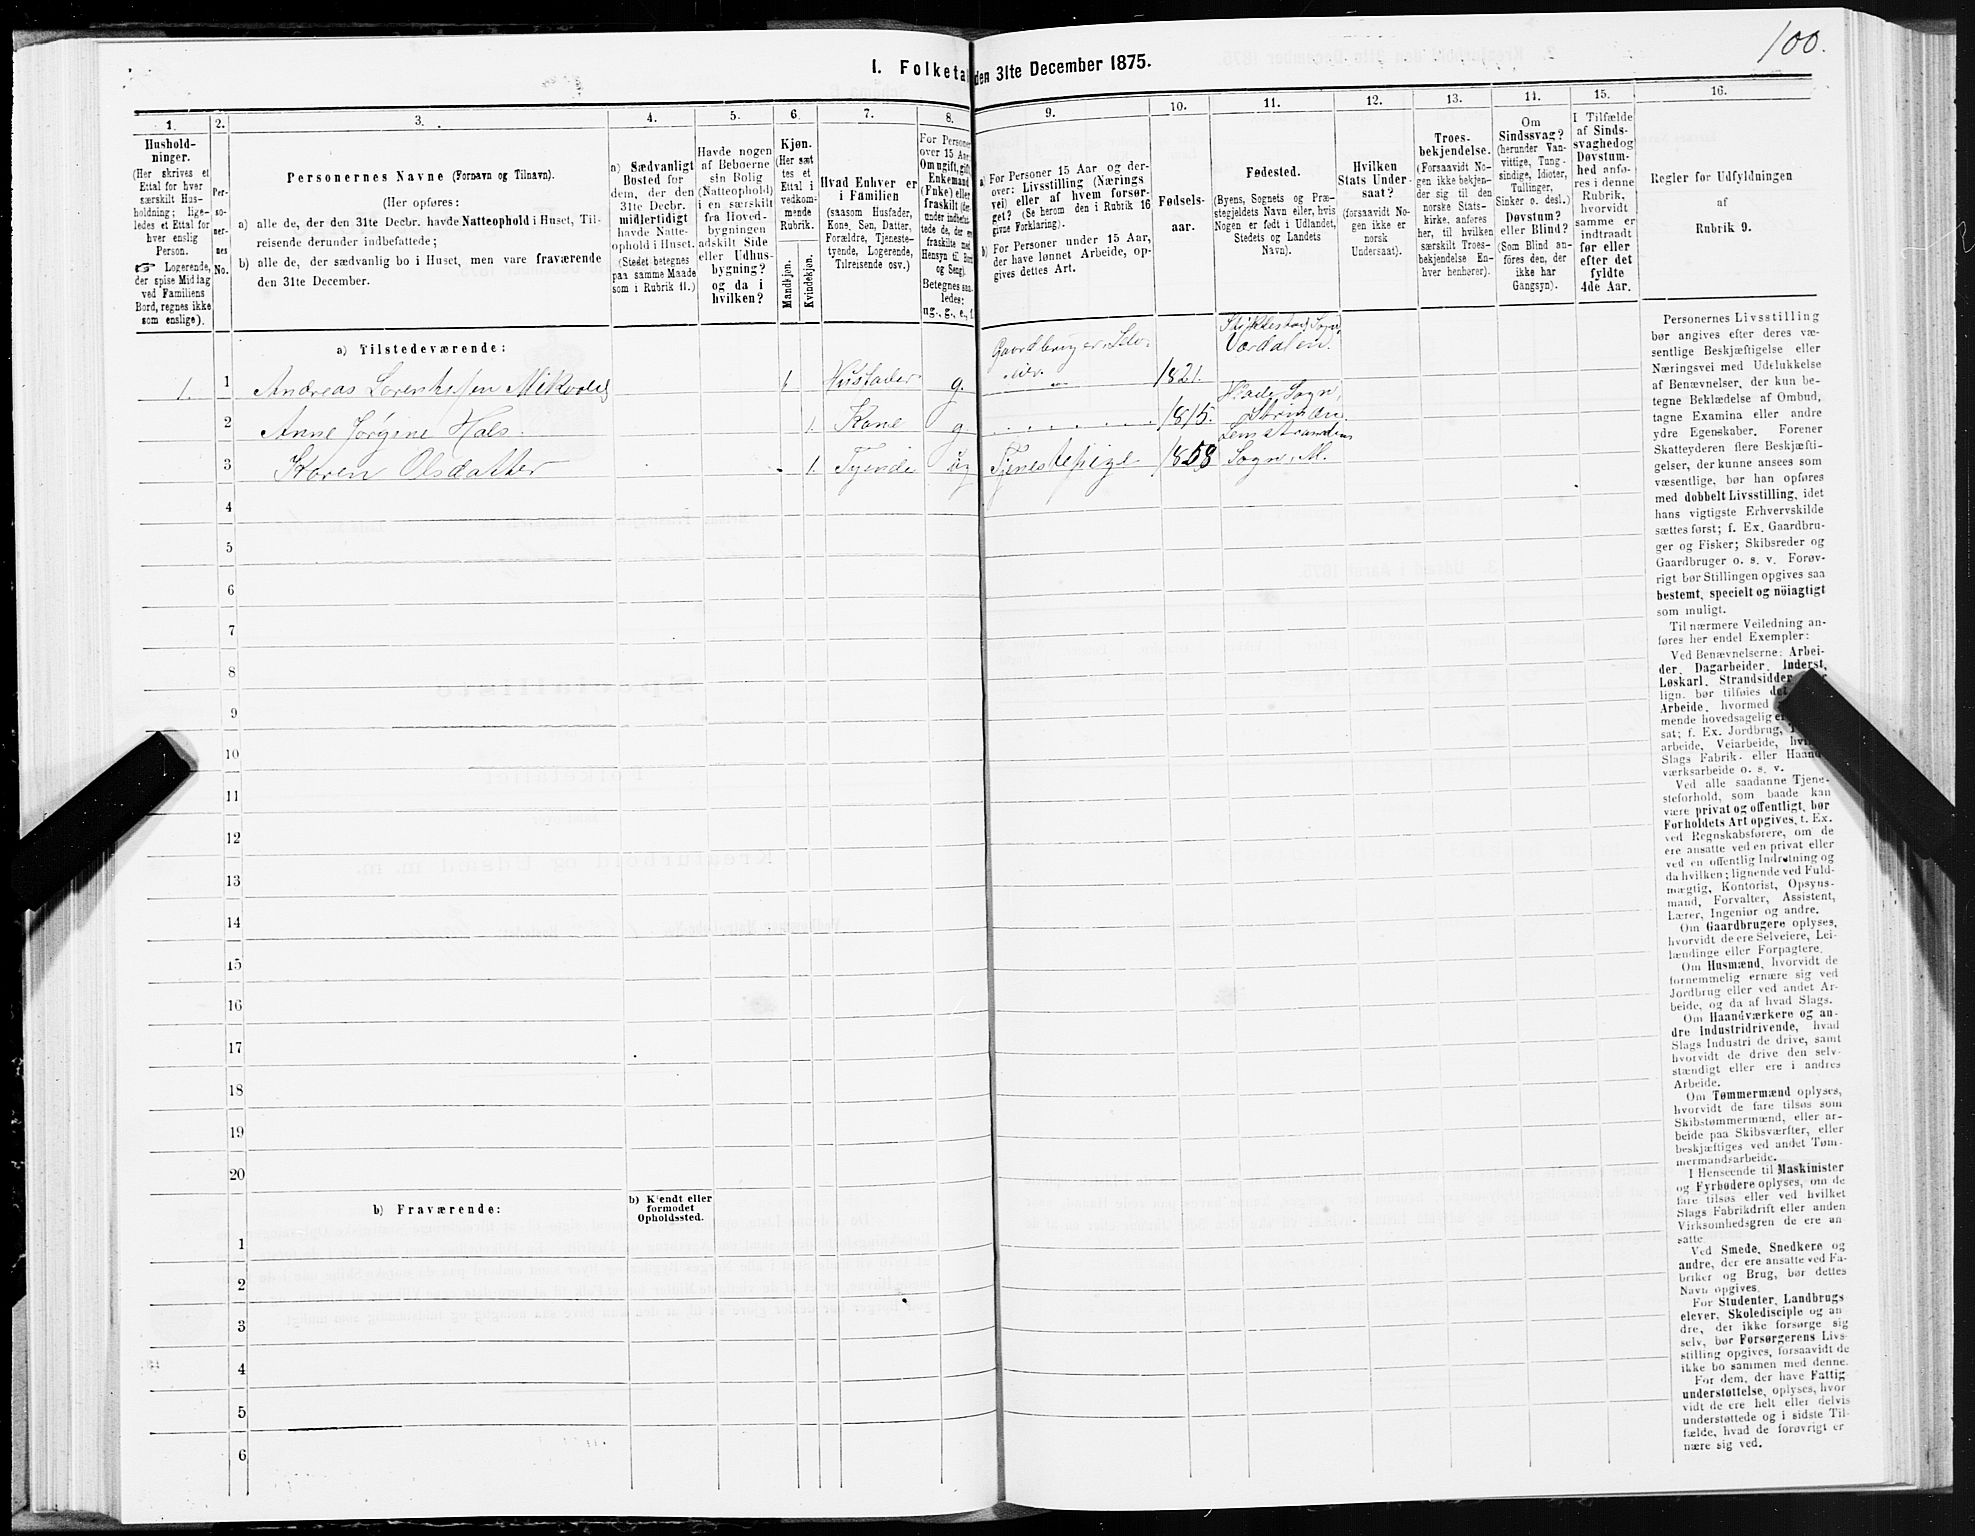 100.
I. Folketal den 31te December 1875.
1.
Hushold-
ninger.
(Her skrives et
Ettal for hver
særskilt Hus-
holdning; lige-
ledes et Ettal for
hver enslig
Person.
☞ Logerende,
der spise Middag
ved Familiens
Bord, regnes ikke
som enslige).
2.
Per-
so-
ner-
nes
No.
3.
Personernes Navne (Fornavn og Tilnavn).
(Her opføres:
a) alle de, der den 31te Decbr. havde Natteophold i Huset, Til-
reisende derunder indbefattede;
b) alle de, der sædvanlig bo i Huset, men vare fraværende
den 31te December.
4.
a) Sædvanligt
Bosted for
dem, der den
31te Decbr.
midlertidigt
havde Natte-
ophold i Huset.
(Stedet betegnes
paa samme Maade
som i Rubrik 11.)
5.
Havde nogen
af Beboerne
sin Bolig
(Natteophold)
i en særskilt
fra Hoved-
bygningen
adskilt Side
eller Udhus-
bygning?
og da i
hvilken?
6.
Kjøn.
(Her sæt
tes et
Ettal i
vedkom-
mende
Rubrik.
Mandkjøn.
Kvindekjøn.
7.
Hvad Enhver er
i Familien
(saasom Husfader,
Kone, Søn, Datter,
Forældre, Tjeneste-
tyende, Logerende,
Tilreisende osv.)
8.
For Personer
over 15 Aar
Om ugift, gift,
Enkemand
(Enke) eller
fraskilt (der-
under indbefat-
tede de, der ere
fraskilte med
Hensyn til Bord
og Seng).
Betegnes saa-
ledes:
ug., g., e., f.
9.
a) For Personer 15 Aar og der-
over: Livsstilling (Nærings
vei) eller af hvem forsør-
get? (Se herom den i Rubrik 16
givne Forklaring).
b) For Personer under 15 Aar,
der have lønnet Arbeide, op-
gives dettes Art.
10.
Fødsels-
aar.
11.
Fødested.
(Byens, Sognets og Præ-
stegjeldets Navn eller, hvis
Nogen er født i Udlandet,
Stedets og Landets
Navn).
12.
Hvilken
Stats Under-
saat?
(forsaavidt No-
gen ikke er
norsk
Undersaat).
13.
Troes-
bekjendelse.
(Forsaavidt No-
gen ikke bekjen-
der sig til den
norske Stats-
kirke, anføres
her, til hvilken
særskilt Troes-
bekjendelse En-
hver henhører).
14.
Om
Sindssvag?
(herunder Van-
vittige, Tung-
sindige, Idioter,
Tullinger,
Sinker o. desl.)
Døvstum?
eller Blind?
(Som Blind an-
føres den, der
ikke har
Gangsyn).
15.
I Tilfælde
af Sinds-
svaghed og
Døvstum-
hed anfø-
res i denne
Rubrik,
hvorvidt
samme er
indtraadt
før eller
efter det
fyldte
4de Aar.
16.
Regler for Udfyldningen
af
Rubrik 9.
a) Tilstedeværende:
1. 1 Andreas Lorentsen Mikvold 1 Husfader g. Gaardbruger, Selv- 1821. Stiklestad Sogn, Værdalen.
2 Anne Jørgine Hals. 1. Kone g. . . . . . . . 1815. Hlade Sogn, Strinden
3 Karen Olsdatter 1. Tyende ug Tjenestepige 1858 Lensstranden Sogn, M.
4
5
6
7
8
9
10
11
12
13
14
15
16
17
18
19
20
b) Fraværende:
b) Kjendt eller
formodet
Opholdssted.
1
2
3
4
5
6
Personernes Livsstilling
bør angives efter deres væ-
sentlige Beskjæftigelse eller
Næringsvei med Udelukkelse
af Benævnelser, der kun be-
tegne Beklædelse af Ombud,
tagne Examina eller andre
ydre Egenskaber. Forener
Skatteyderen flere Beskjæfti-
gelser, der kunne ansees som
væsentlige, bør han opføres
med dobbelt Livsstilling, idet
hans vigtigste Erhvervskilde
sættes først; f. Ex. Gaardbru-
ger og Fisker; Skibsreder og
Gaardbruger o. s. v. Forøv-
rigt bør Stillingen opgives saa
bestemt, specielt og nøiagtigt
som muligt.
Til nærmere Veiledning an-
føres her endel Exempler:
Ved Benævnelserne: Arbei-
der, Dagarbeider, Inderst,
Løskarl, Strandsidder
lign. bør tilføies det
Arbeide, hvormed
mende hovedsagelig er
sat; f. Ex. Jordbrug,
arbeide, Veiarbeide,
Slags Fabrik- eller Haand-
værksarbeide o. s. v.
Ved alle saadanne Tjene-
steforhold, som baade kan
være privat og offentligt, bør
Forholdets Art opgives, t. Ex.
ved Regnskabsførere, om de
ere ansatte ved en privat eller
ved en offentlig Indretning og
da hvilken; lignende ved Fuld-
mægtig, Kontorist, Opsyns-
mand, Forvalter, Assistent,
Lærer, Ingeniør og andre.
Om Gaardbrugere oplyses,
hvorvidt de ere Selveiere, Lei-
lændinge eller Forpagtere.
Om Husmænd, hvorvidt de
fornemmelig ernære sig ved
Jordbrug eller ved andet Ar-
beide, og da af hvad Slags.
Om Haandværkere og an-
dre Industridrivende, hvad
Slags Industri de drive, samt
hvorvidt de drive den selv-
stændigt eller ere i andres
Arbeide.
Om Tømmermænd oplyses,
hvorvidt de fare tilsøs som
Skibstømmermænd, eller ar-
beide paa Skibsværfter, eller
beskjæftiges ved andet Tøm-
mermandsarbeide.
I Henseende til Maskinister
og Fyrbødere oplyses, om de
fare tilsøs eller ved hvilket
Slags Fabrikdrift eller anden
Virksomhedsgren de ere an-
satte.
Ved Smede, Snedkere og
andre, der ere ansatte ved Fa-
briker og Brug, bør dettes
Navn opgives.
For Studenter, Landbrugs
elever, Skoledisciple og an-
dre, der ikke forsørge sig
selv, bør Forsørgerens Livs-
stilling opgives, forsaavidt de
ikke bo sammen med denne.
For dem, der have Fattig-
understøttelse, oplyses, hvor
vidt de ere helt eller delvis
understøttede og i sidste Til-
fælde, hvad de forøvrigt er
nære sig ved.